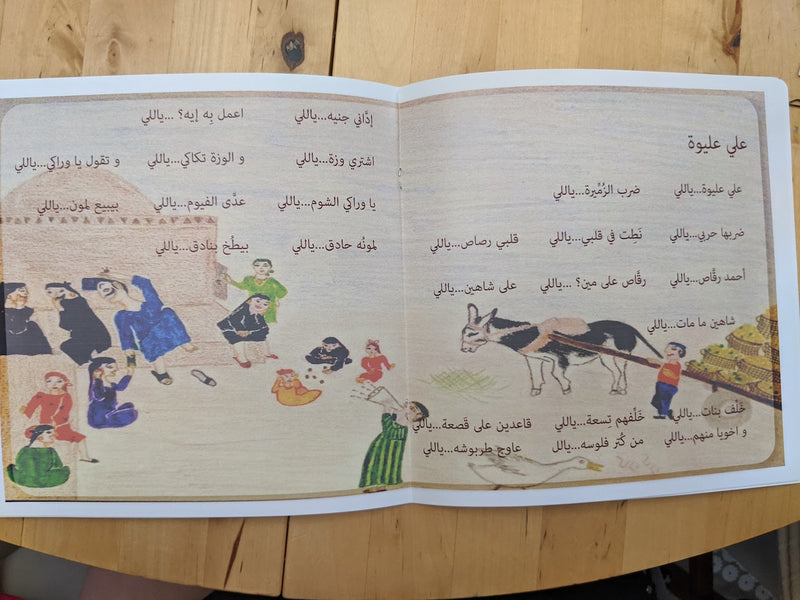 علي عليوة
علي عليوة...ياللي ضرب الزُمِّيرة...ياللي
ضربها حربي...ياللي نَطِت في قلبي...ياللي قلبي رصاص...ياللي
أحمد رقَّاص...ياللي رقَّاص على مين؟ ...ياللي على شاهين...ياللي
شاهين ما مات...ياللي
خَلِّف بنات...ياللي خَلِّفهم تِسعة...ياللي قاعدين على قَصعة...ياللي
و اخويا منهم...ياللي من كُتر فلوسه...يالل عاوج طربوشه...ياللي
إدَّاني جنيه...ياللي اعمل بِه إيه؟ ...ياللي
اشتري وزة...ياللي و الوزة تكاكي...ياللي و تقول يا وراكي...ياللي
يا وراكي الشوم...ياللي عدَّى الفيوم...ياللي بيبيع لمون...ياللي
لمونُه حادق...ياللي بيطُخ بنادق...ياللي